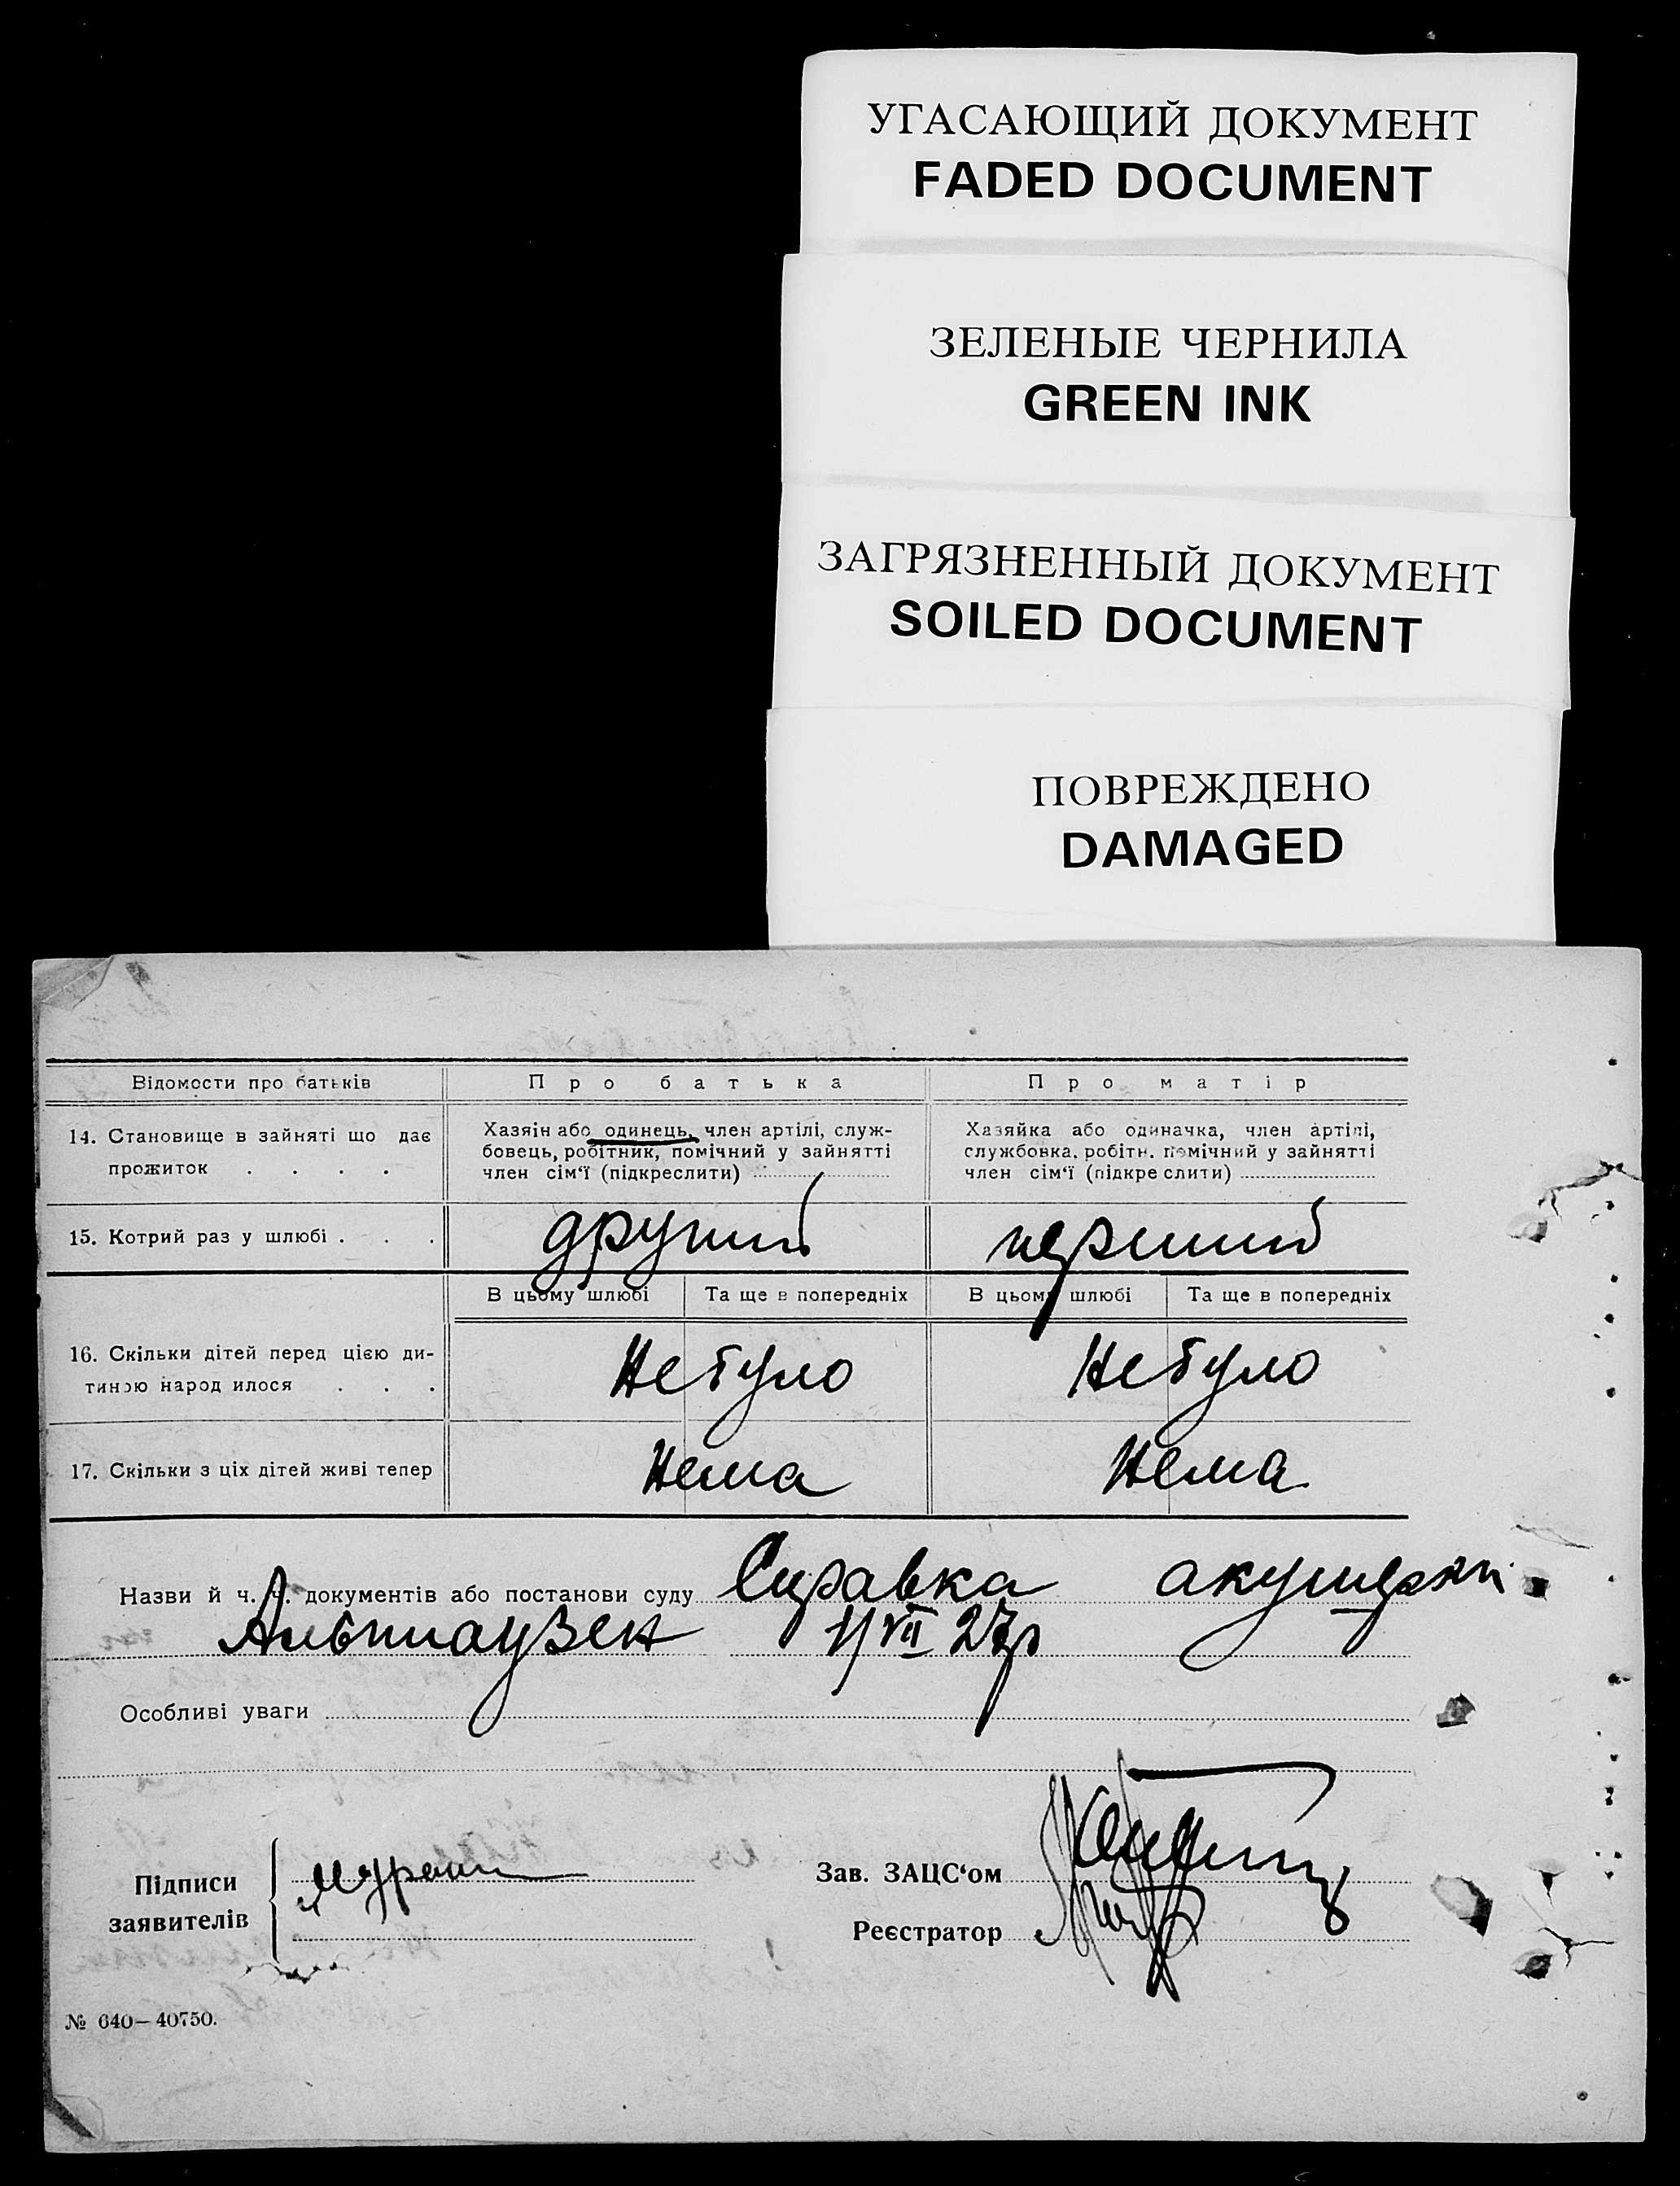 УГАСАЮЩИЙ ДОКУМЕНТ
FADED DOCUMENT
ЗЕЛЕНЫЕ ЧЕРНИЛА
GREEN INK
ЗАГРЯЗНЕННЫЙ ДОКУМЕНТ
SOILED DOCUMENT
ПОВРЕЖДЕНО
DAMAGED
Відомости про батьків
Про батька
Про матір
14. Становище в зайняті що дає
прожиток . . . .
Хазяїн або одинець, член артілі, служ-
бовець, робітник, помічний у зайнятті
член сім'ї (підкреслити)
Хазяйка або одиначка, член артілі,
службовка, робітн. помічний у зайнятті
член сім'ї (підкреслити)
15. Котрий раз у шлюбі . . .
другий
перший
В цьому шлюбі
Та ще в попередніх
В цьому шлюбі
Та ще в попередніх
16. Скільки дітей перед цією ди-
тиною народилося . . .
Не було
Не було
17. Скільки з ціх дітей живі тепер
Нема
Нема
Назви й ч. ч. документів або постанови суду Справка акушерки
Альтгаузен 1/VII 27р
Особливі уваги
Підписи
заявителів
Зав. ЗАЦС'ом
Реєстратор
№ 640—40750.